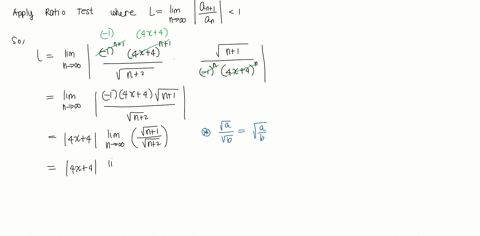 Apply Ratio Test where L = lim n→∞ | a_{n+1} / a_n | < 1
So,
(-1) (4x+4)
L = lim n→∞ | (-1)^{n+1} (4x+4)^{n+1} / √(n+2) · √(n+1) / ((-1)^n (4x+4)^n) |
= lim n→∞ | (-1)(4x+4)√(n+1) / √(n+2) |
= |4x+4| lim n→∞ ( √(n+1) / √(n+2) ) ⊛ √a / √b = √(a/b)
= |4x+4| l